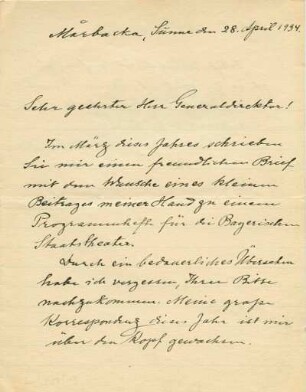 Mårbacka, Sunne den 28. April 1934.
Sehr geehrter Herr Generaldirektor!
Im März dieses Jahres schrieben
Sie mir einen freundlichen Brief
mit dem Wunsche eines kleinen
Beitrages meiner Hand zu einem
Programmheft für die Bayerischen
Staatstheater.
Durch ein bedauerliches Übersehen
habe ich vergessen, Ihrer Bitte
nachzukommen. Meine große
Korrespondenz dieses Jahr ist mir
über den Kopf gewachsen.